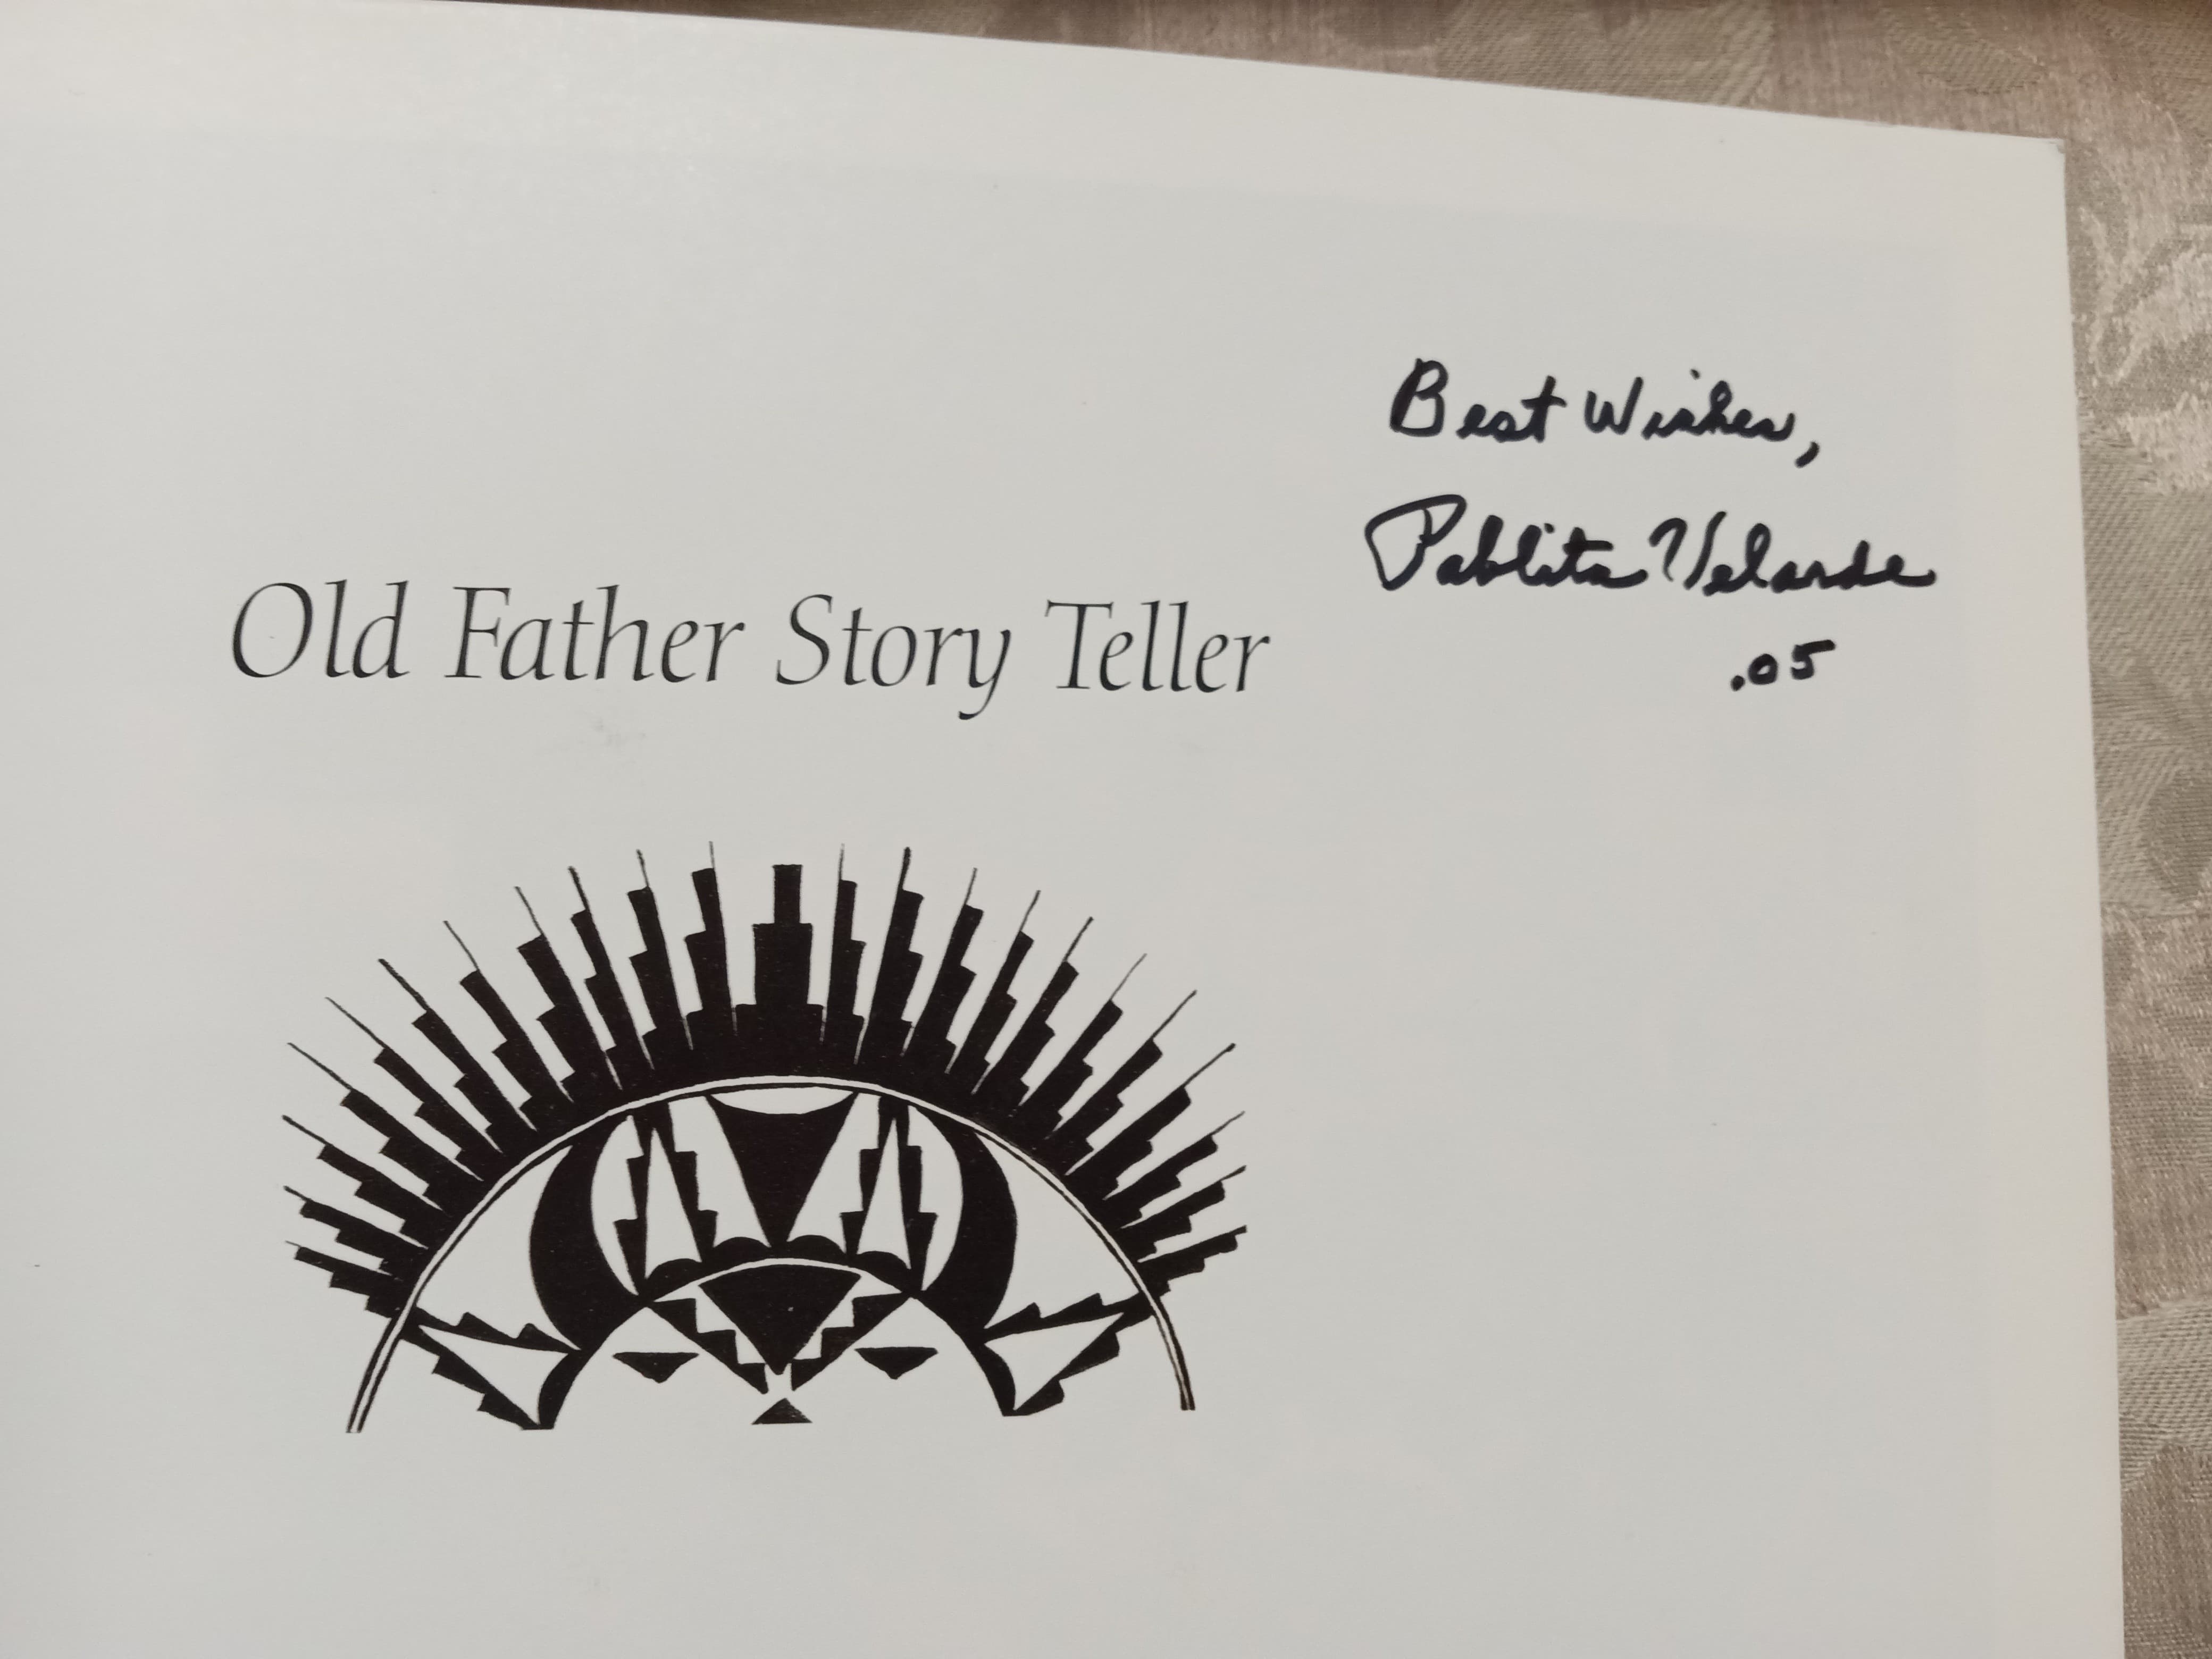 Best Wishes,
Pablita Velarde
.05
Old Father Story Teller